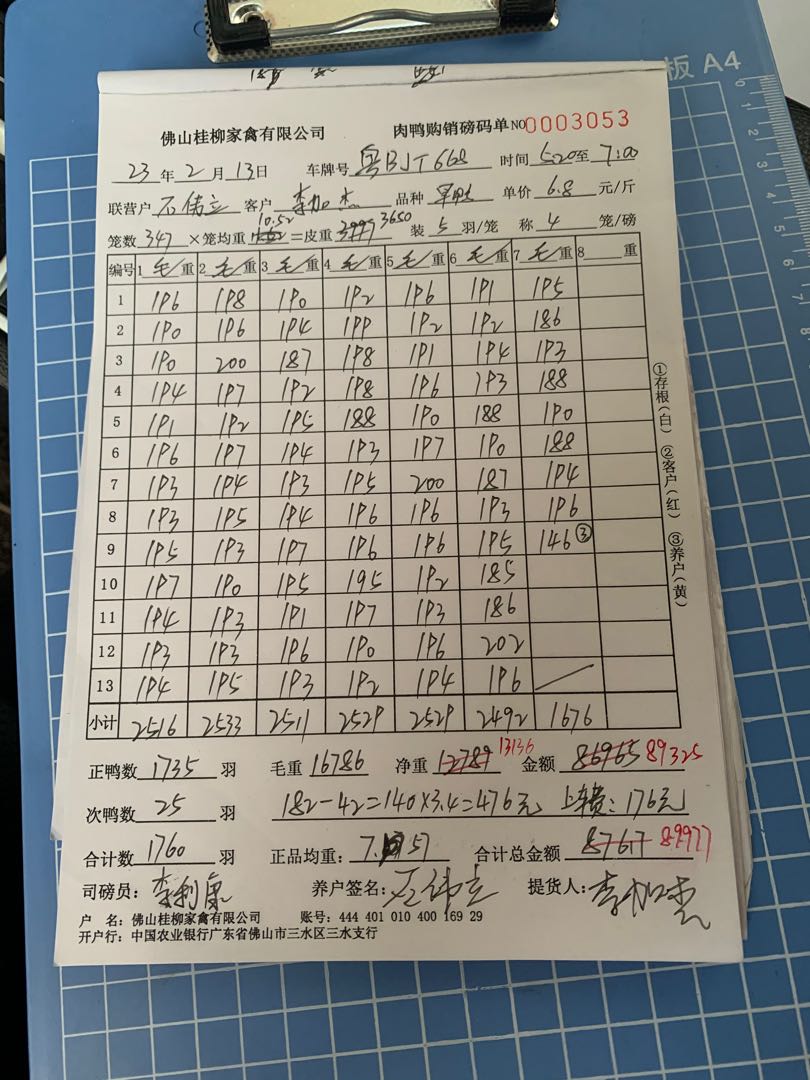 板 A4
佛山桂柳家禽有限公司 肉鸭购销磅码单 NO 0003053
23 年 2 月 13 日 车牌号 粤BJT668 时间 5:20 至 7:00
联营户 石伟立 客户 李加杰 品种 单价 6.8 元/斤
笼数 347 ×笼均重 10.52 =皮重 3650 装 5 羽/笼 称 4 笼/磅
编号 1 毛/重 2 毛/重 3 毛/重 4 毛/重 5 毛/重 6 毛/重 7 毛/重 8 重
1 196 198 190 192 196 191 195
2 190 196 194 199 192 192 186
3 190 200 187 198 191 194 193
4 194 197 192 198 196 193 188
5 191 192 195 188 190 188 190
6 196 197 194 193 197 190 188
7 193 194 193 195 200 187 194
8 193 195 194 196 196 193 196
9 195 193 197 196 196 195 146 ③
10 197 190 195 195 192 185
11 194 193 191 197 193 186
12 193 193 196 190 196 202
13 194 195 193 192 194 196
小计 2516 2533 2511 2529 2529 2492 1676
正鸭数 1735 羽 毛重 16786 净重 12789 13136 金额 86965 89325
次鸭数 25 羽 182-42=140×3.4=476元 上车费：176元
合计数 1760 羽 正品均重： 7.57 合计总金额 87617 89977
司磅员：李利康 养户签名：石伟立 提货人：李加杰
户 名：佛山桂柳家禽有限公司 账号：444 401 010 400 169 29
开户行：中国农业银行广东省佛山市三水区三水支行
①存根(白) ②客户(红) ③养户(黄)